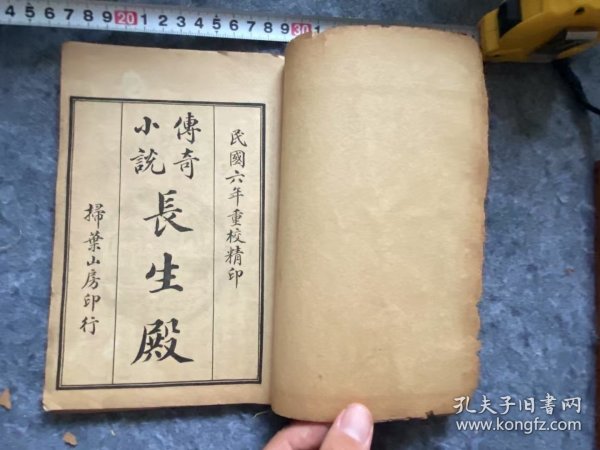 民國六年重校精印
傳奇
小說
長生殿
掃葉山房印行
4 5 6 7 8 9 20 1 2 3 4 5 6 7 8 9 30 1
孔夫子旧书网
www.kongfz.com